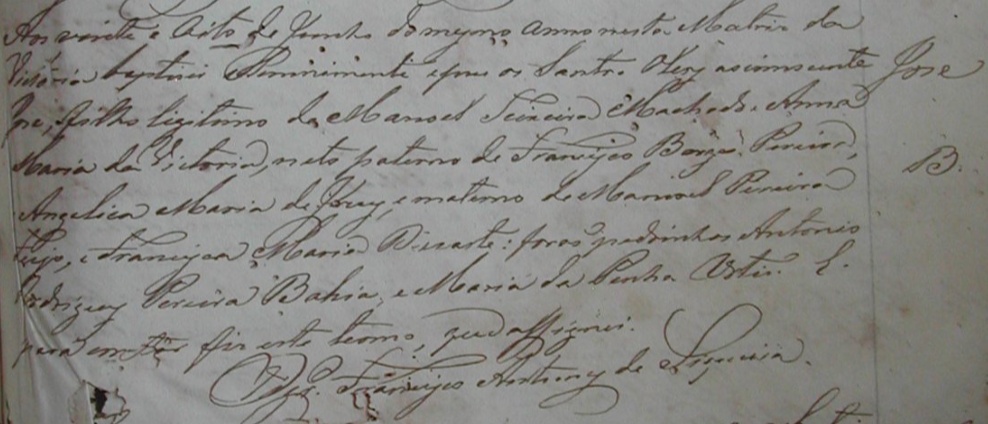 Aos vinte e oito de Junho do mesmo anno nesta Matriz da
Victoria baptisei Solennemente e pus os Santos Oleos ao innocente
José
filho legitimo de Manoel Teixeira Machado e Anna
Maria da Victoria, neto paterno de Francisco Borges Pereira,
B.
Angelica Maria de Jesus, e materno de Manoel Pereira
e Francisca Maria Duarte: foraõ padrinhos Antonio
Rodrigues Pereira Bahia, e Maria da Penha E
para constar fiz este termo, que assignei.
Vigr.º Francisco Antunes de Siqueira.